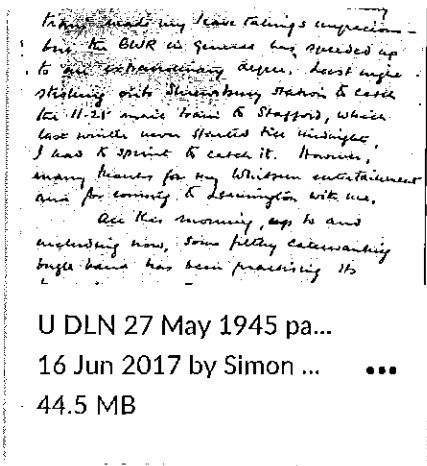 train made my leave takings ungracious –
but the GWR in general has speeded up
to an extraordinary degree. Last night
strolling onto Shrewsbury Station to catch
the 11-25 mail train to Stafford, which
last winter never started till midnight,
I had to sprint to catch it. However,
many thanks for my Whitsun entertainment
and for coming to Leamington with me.
All this morning, up to and
including now, some filthy caterwauling
bugle band has been practising its
U DLN 27 May 1945 pa...
16 Jun 2017 by Simon ...
44.5 MB